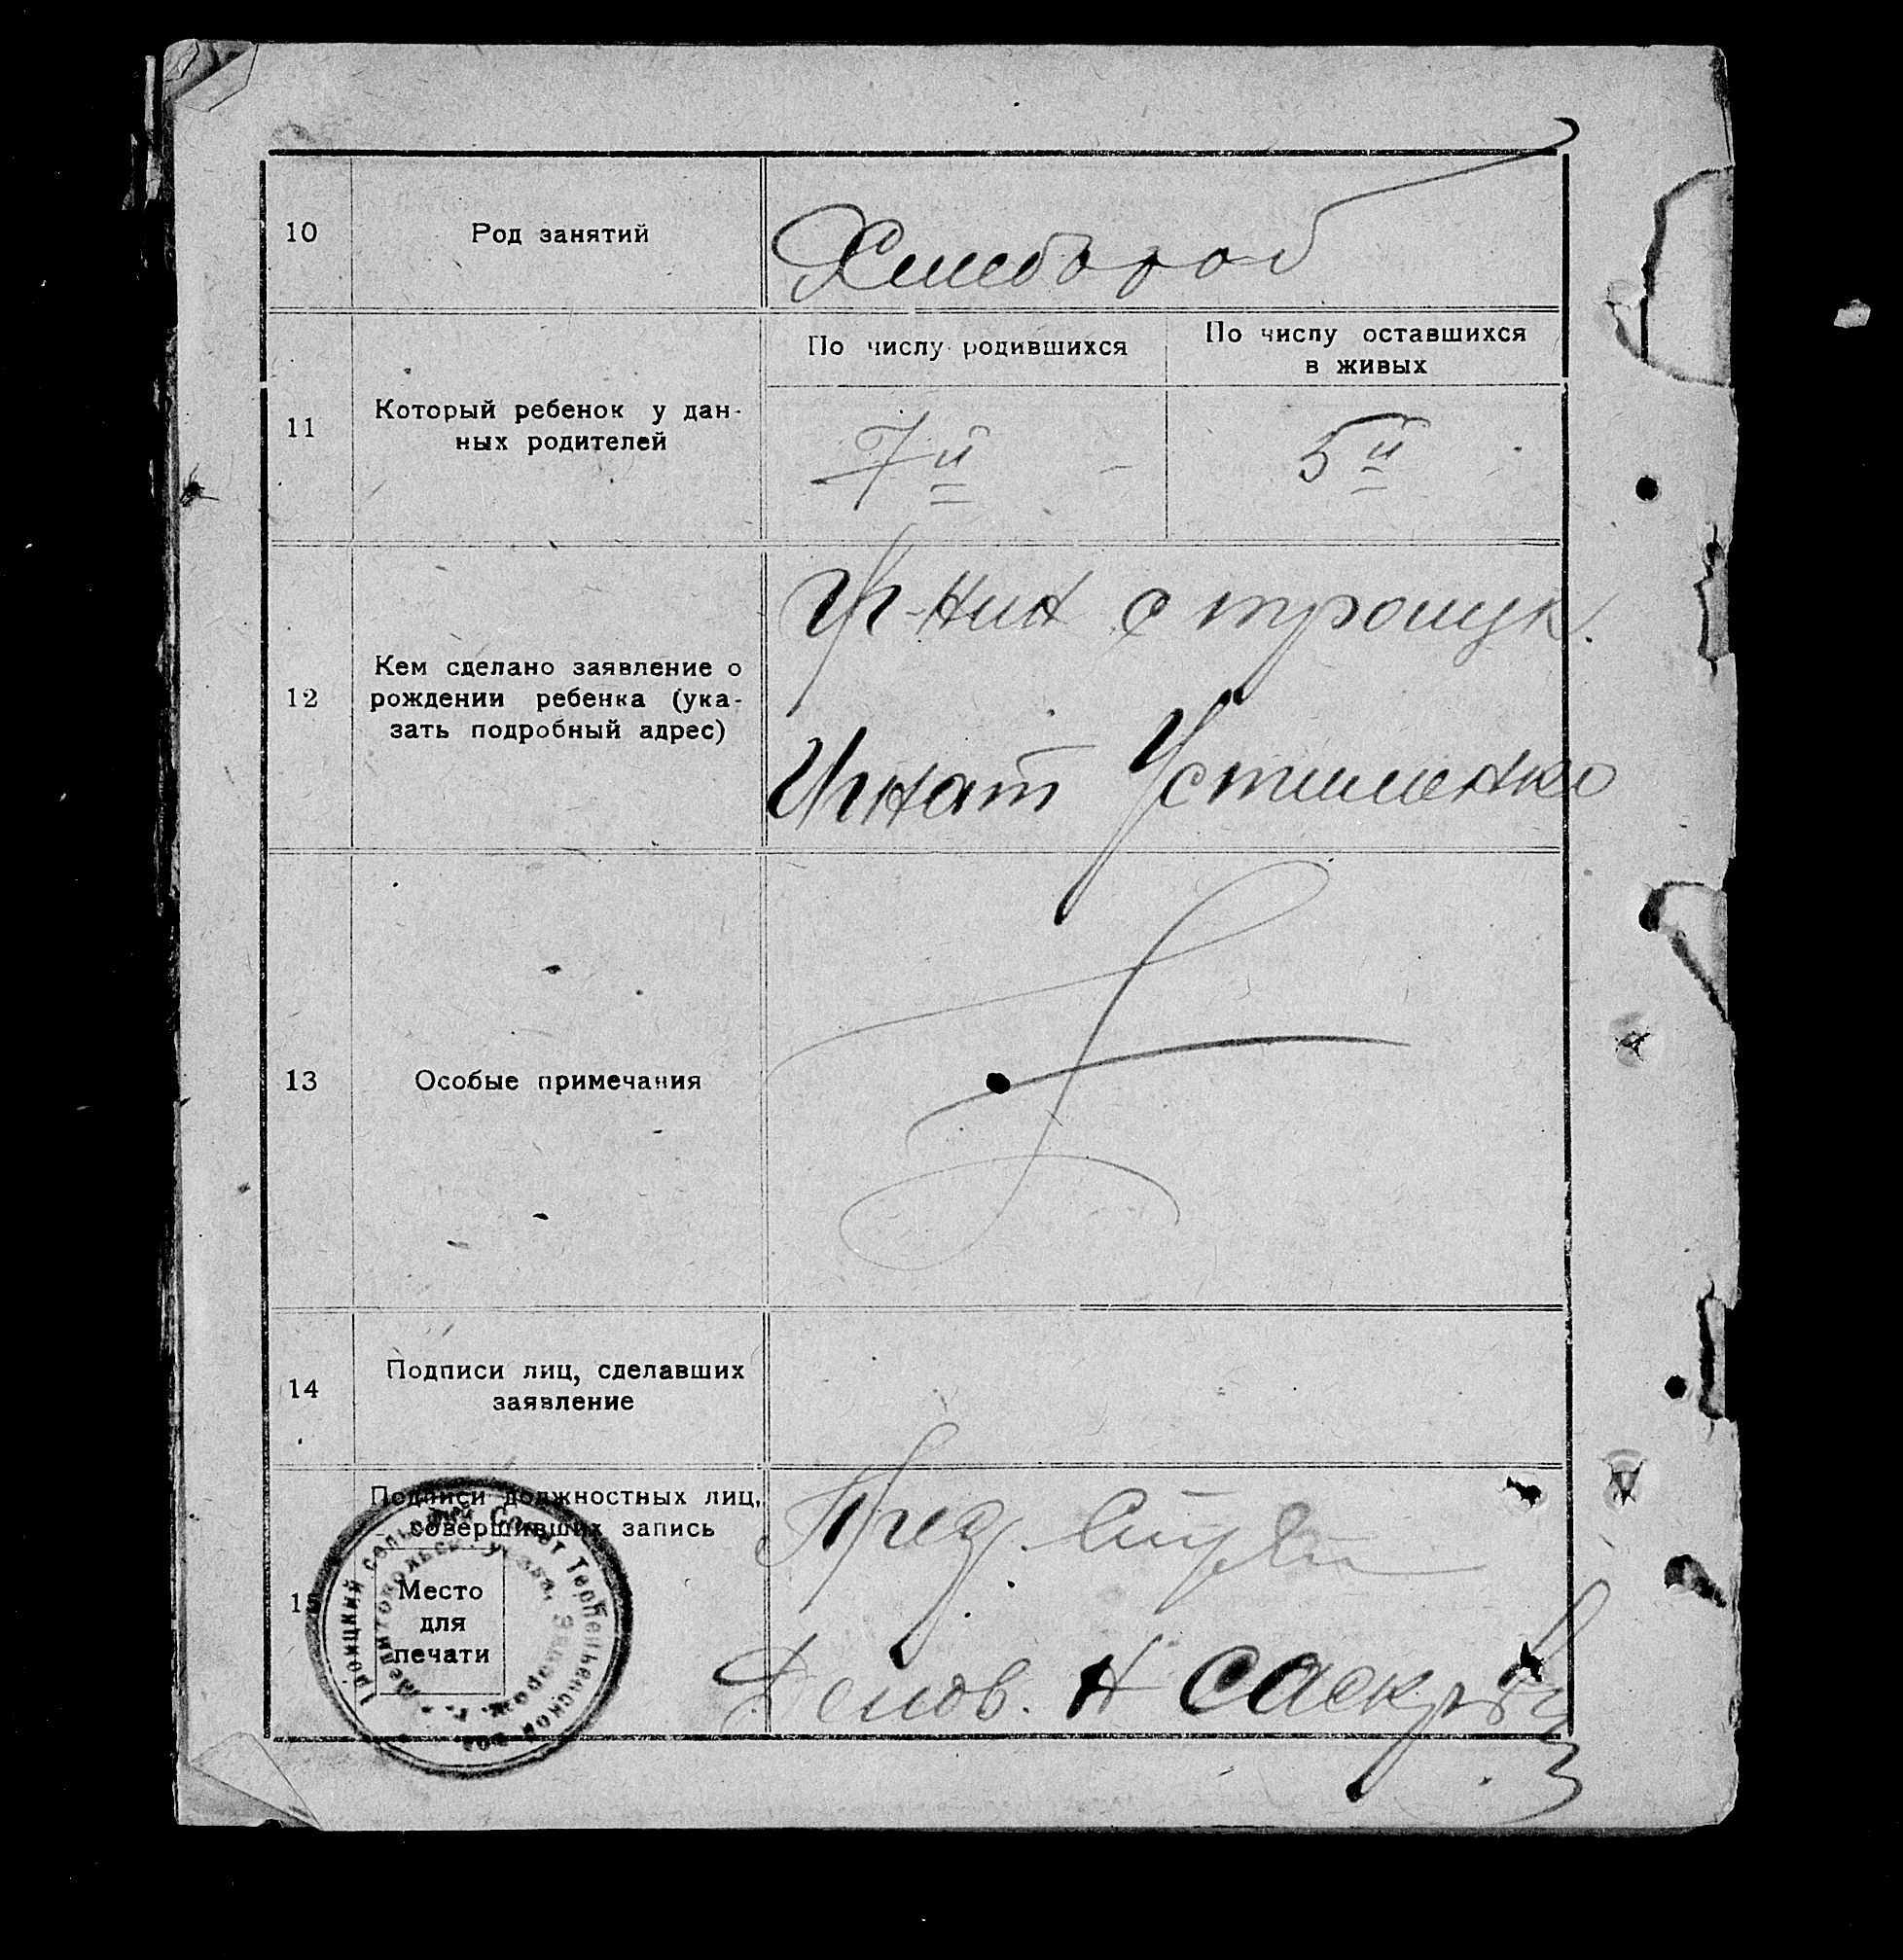 10
Род занятий
Хлебороб
11
Который ребенок у дан-
ных родителей
По числу родившихся
По числу оставшихся
в живых
7й
5й
12
Кем сделано заявление о
рождении ребенка (ука-
зать подробный адрес)
Гр-нин с троицк.
Игнат Устименко
13
Особые примечания
14
Подписи лиц, сделавших
заявление
15
Подписи должностных лиц,
совершивших запись
Место
для
печати
Троицкий сельский Совет Терпеньевской вол.
Мелитопольск. у
Пред.
Делов. Н